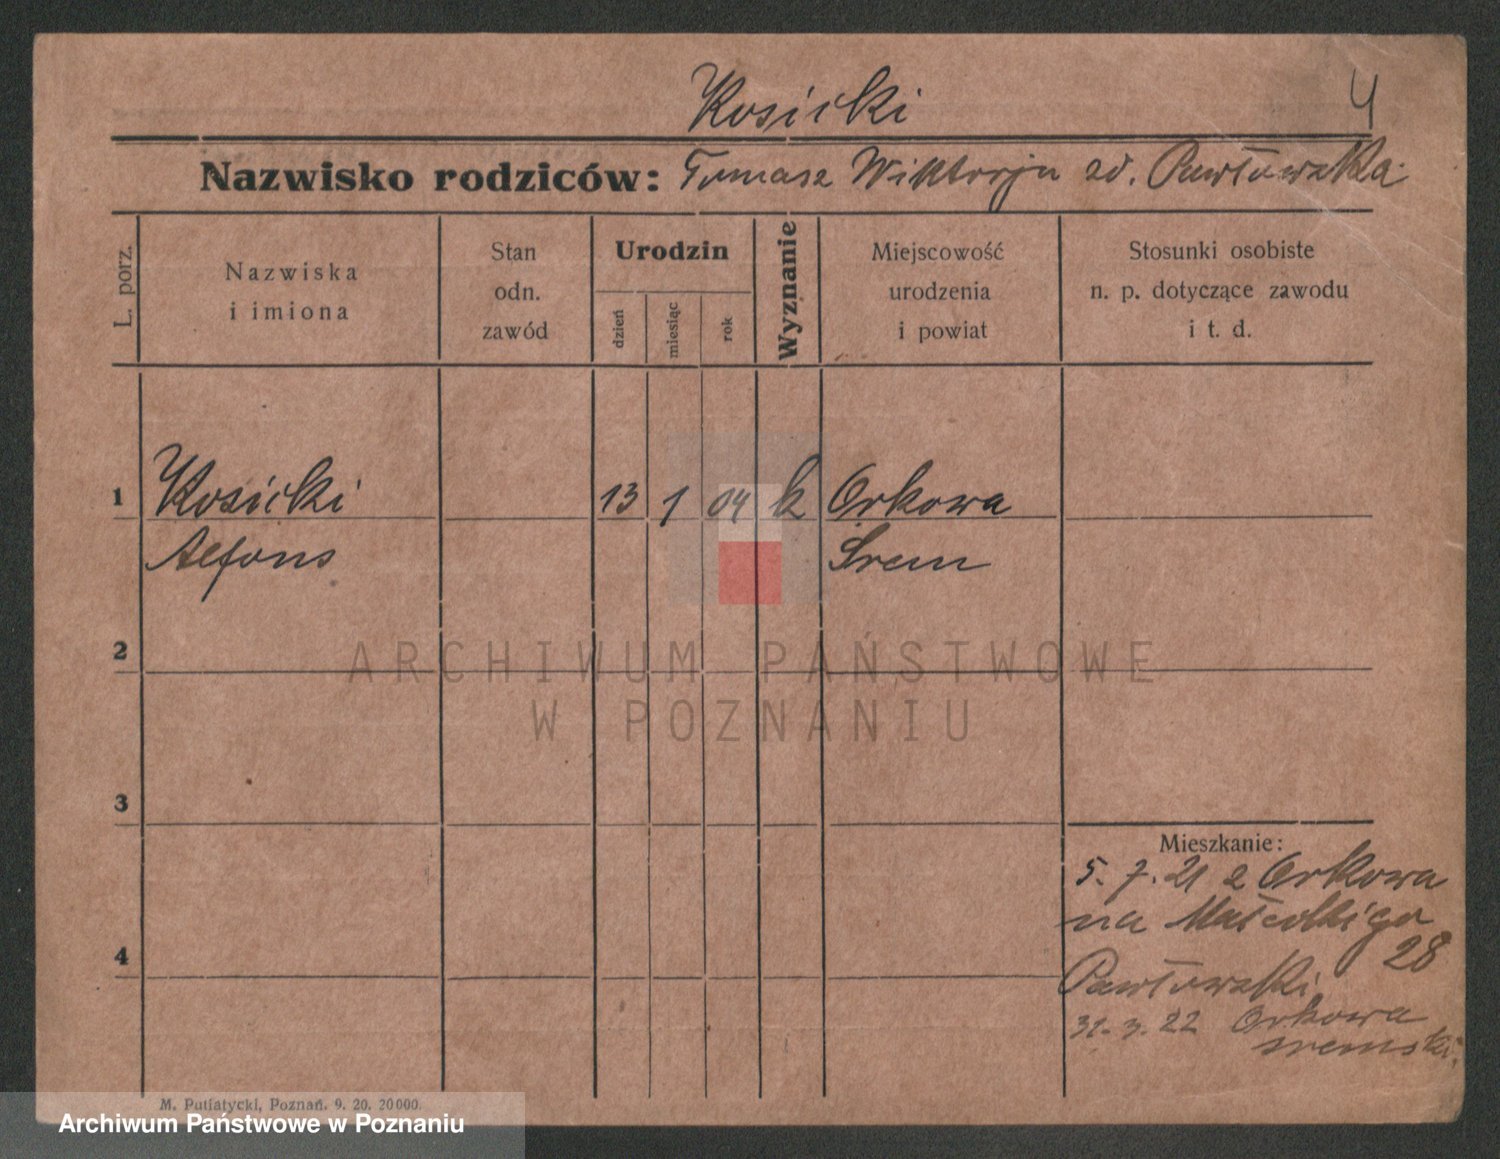 Kosicki
4
Nazwisko rodziców: Tomasz Wiktorja zd. Pawłowska
L. porz.
Nazwiska
i imiona
Stan
odn.
zawód
Urodzin
dzień
miesiąc
rok
Wyznanie
Miejscowość
urodzenia
i powiat
Stosunki osobiste
n. p. dotyczące zawodu
i t. d.
1 Kosicki 13 1 04 k Orkowa
Alfons Śrem
2
ARCHIWUM PAŃSTWOWE
W POZNANIU
3
Mieszkanie:
5. 7. 21 z Orkowa
na Małeckigo
28
4
Pawłowski
31. 3. 22 Orkowa
śremski.
M. Putiatycki, Poznań. 9. 20. 20000.
Archiwum Państwowe w Poznaniu